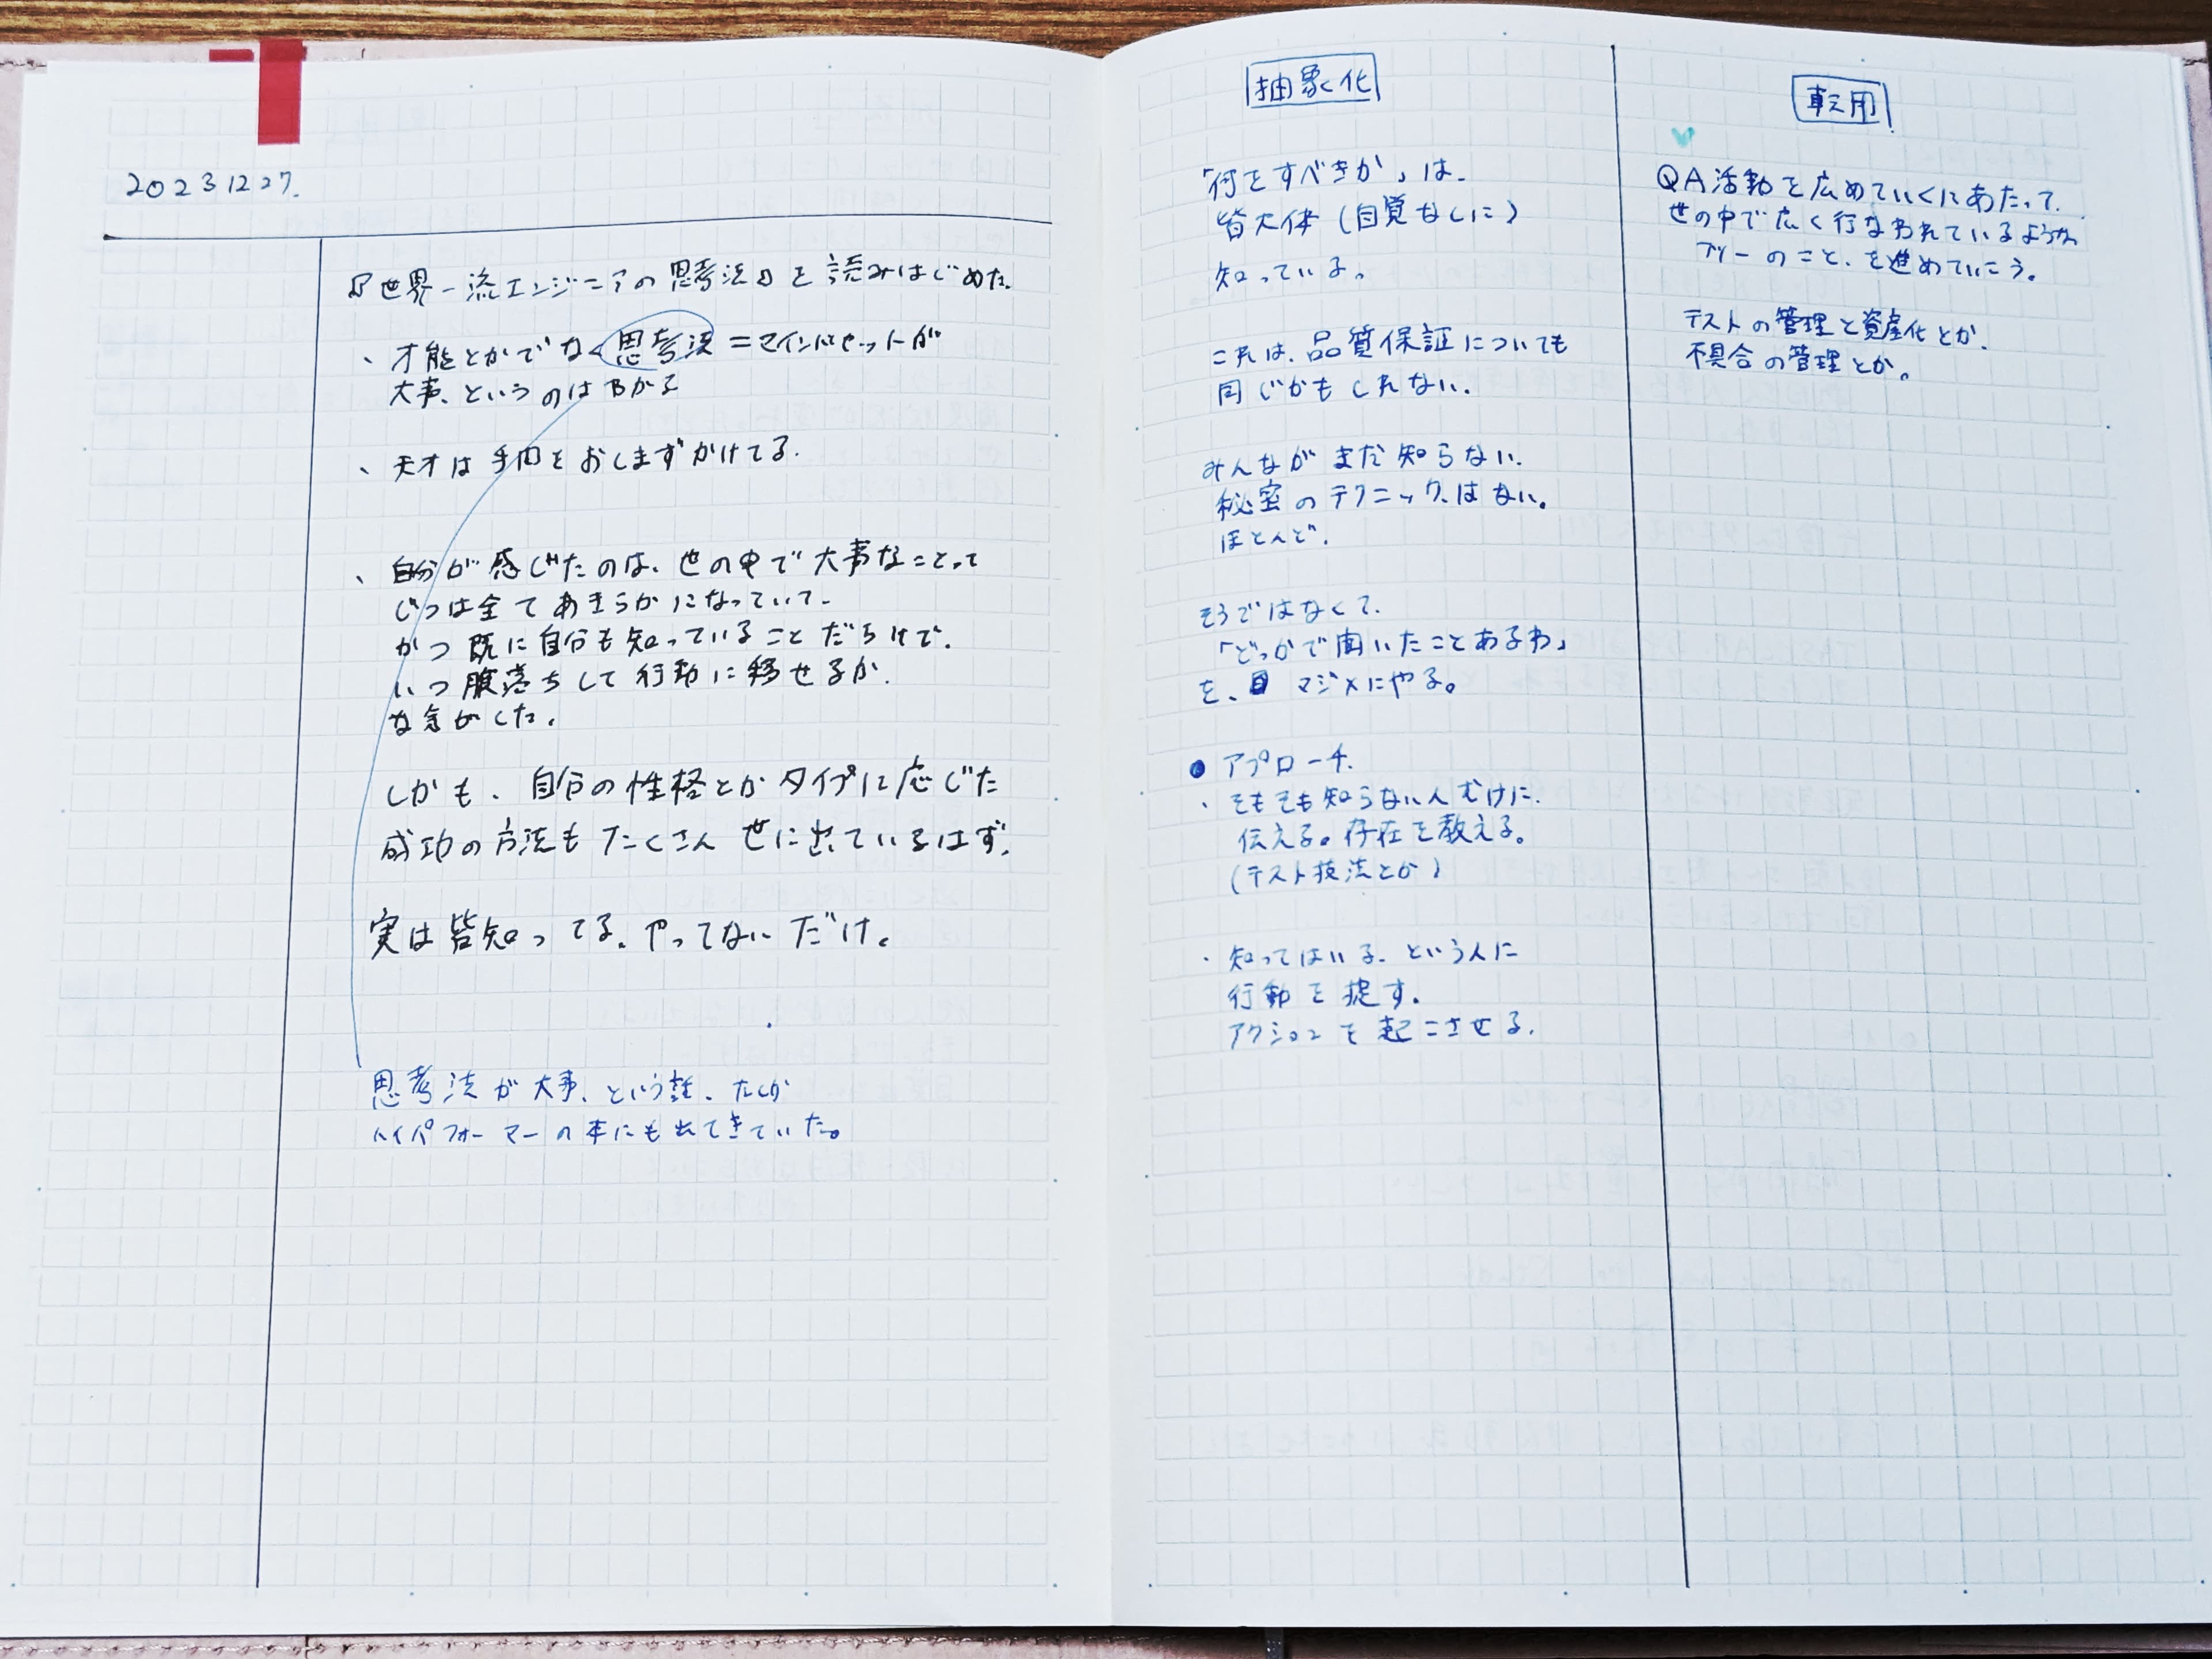 20231227.
『世界一流エンジニアの思考法』を読みはじめた。
、才能とかでなく思考法=マインドセットが
大事、というのはわかる
、天才は手間をおしまずかけてる.
、自分が感じたのは、世の中で大事なことって
じつは全てあきらかになっていて、
かつ既に自分も知っていることだらけで、
いつ腹落ちして行動に移せるか.
な気がした。
しかも、自分の性格とかタイプに応じた
成功の方法もたくさん世に出ているはず.
実は皆知ってる、やってないだけ。
思考法が大事、という話、たしか
ハイパフォーマーの本にも出てきていた。
抽象化
「何をすべきか」は、
皆大体(自覚なしに)
知っている。
これは、品質保証についても
同じかもしれない.
みんながまだ知らない、
秘密のテクニック、はない。
ほとんど.
そうではなくて、
「どっかで聞いたことあるわ」
を、マジメにやる。
● アプローチ.
・そもそも知らない人むけに、
伝える。存在を教える。
(テスト技法とか)
・知ってはいる、という人に
行動を促す.
アクションを起こさせる.
転用
QA活動を広めていくにあたって、
世の中で広く行なわれているような
フツーのこと、を進めていこう。
テストの管理と資産化とか、
不具合の管理とか。